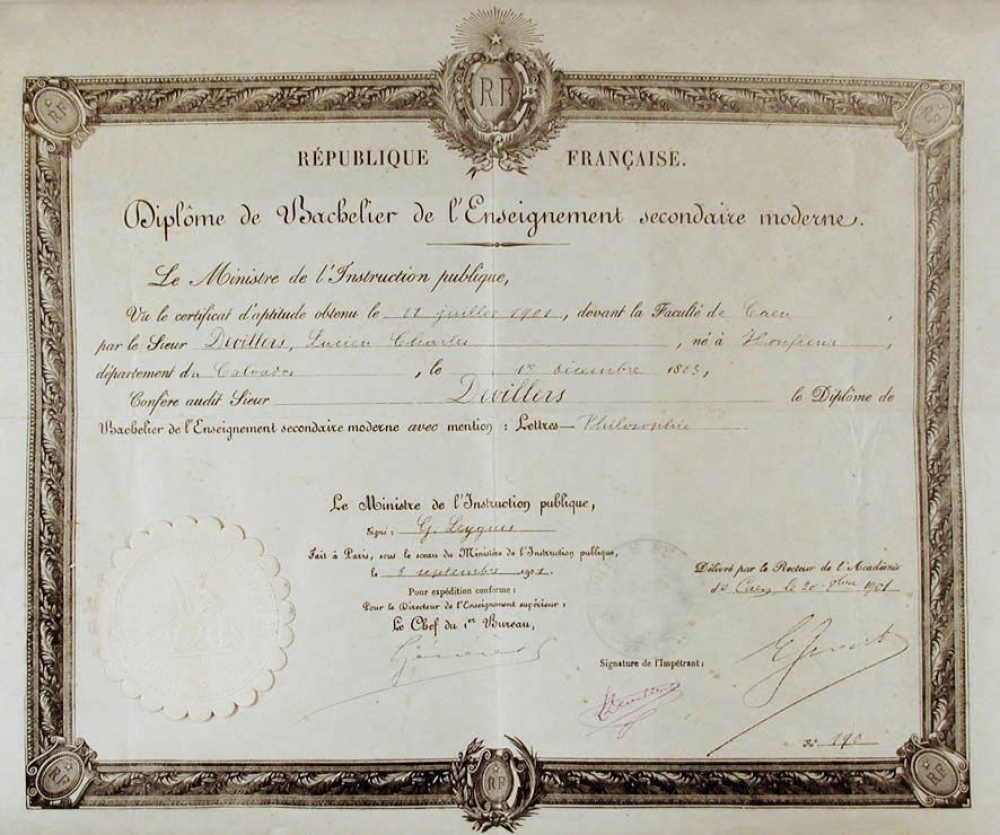 RF
RF
RF
RÉPUBLIQUE FRANÇAISE.
Diplôme de Bachelier de l'Enseignement secondaire moderne.
Le Ministre de l'Instruction publique,
Vu le certificat d'aptitude obtenu le juillet 1901, devant la Faculté de Caen,
par le Sieur Devillers, Lucien Charles, né à Honfleur,
département du Calvados, le décembre 1883,
Confère audit Sieur Devillers le Diplôme de
Bachelier de l'Enseignement secondaire moderne avec mention : Lettres—Philosophie
Le Ministre de l'Instruction publique,
Signé : G. Leygues
Fait à Paris, sous le sceau du Ministère de l'Instruction publique,
le septembre 1901.
Pour expédition conforme :
Pour le Directeur de l'Enseignement supérieur :
Le Chef du 1er Bureau,
Délivré par le Recteur de l'Académie
de Caen, le 20 1901
Signature de l'Impétrant :
N° 190
RF
RF
RF